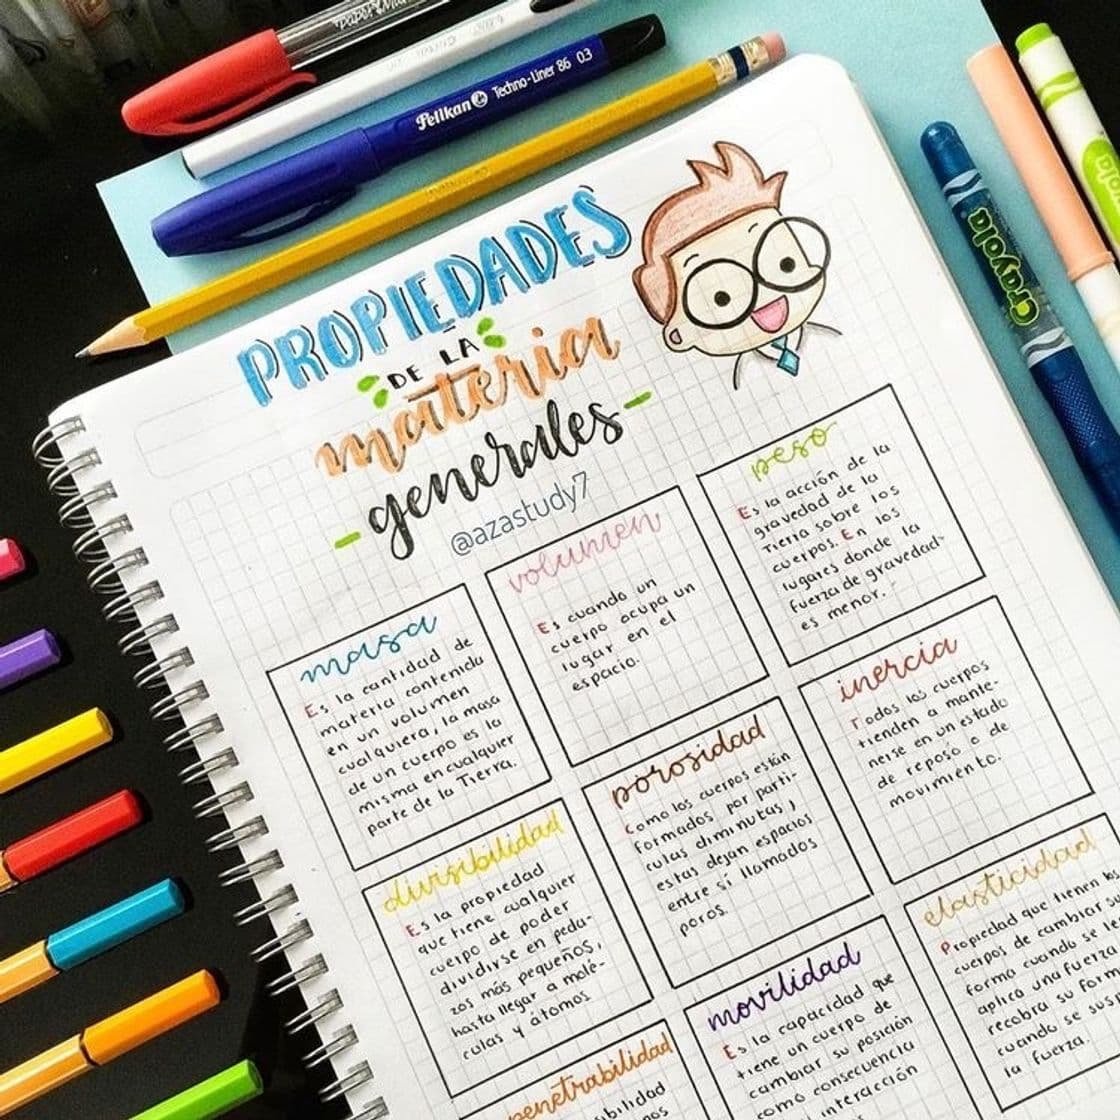 Pelikan Techno-Liner 86 03
Crayola
PROPIEDADES
DE LA
materia
- generales -
@azastudy7
masa
Es la cantidad de
materia contenida
en un volumen
cualquiera, la masa
de un cuerpo es la
misma en cualquier
parte de la Tierra.
volumen
Es cuando un
cuerpo ocupa un
lugar en el
espacio.
peso
Es la acción de la
gravedad de la
Tierra sobre los
cuerpos. En los
lugares donde la
fuerza de gravedad-
es menor.
divisibilidad
Es la propiedad
que tiene cualquier
cuerpo de poder
dividirse en peda-
zos más pequeños,
hasta llegar a molé-
culas y átomos
porosidad
Como los cuerpos están
formados por partí-
culas diminutas,
estas dejan espacios
entre sí llamados
poros.
inercia
Todos los cuerpos
tienden a mante-
nerse en un estado
de reposo o de
movimiento.
penetrabilidad
movilidad
Es la capacidad que
tiene un cuerpo de
cambiar su posición
como consecuencia
interacción
elasticidad
Propiedad que tienen
cuerpos de cambiar
forma cuando se
aplica una fuerza
recobra su
cuando se
la fuerza.